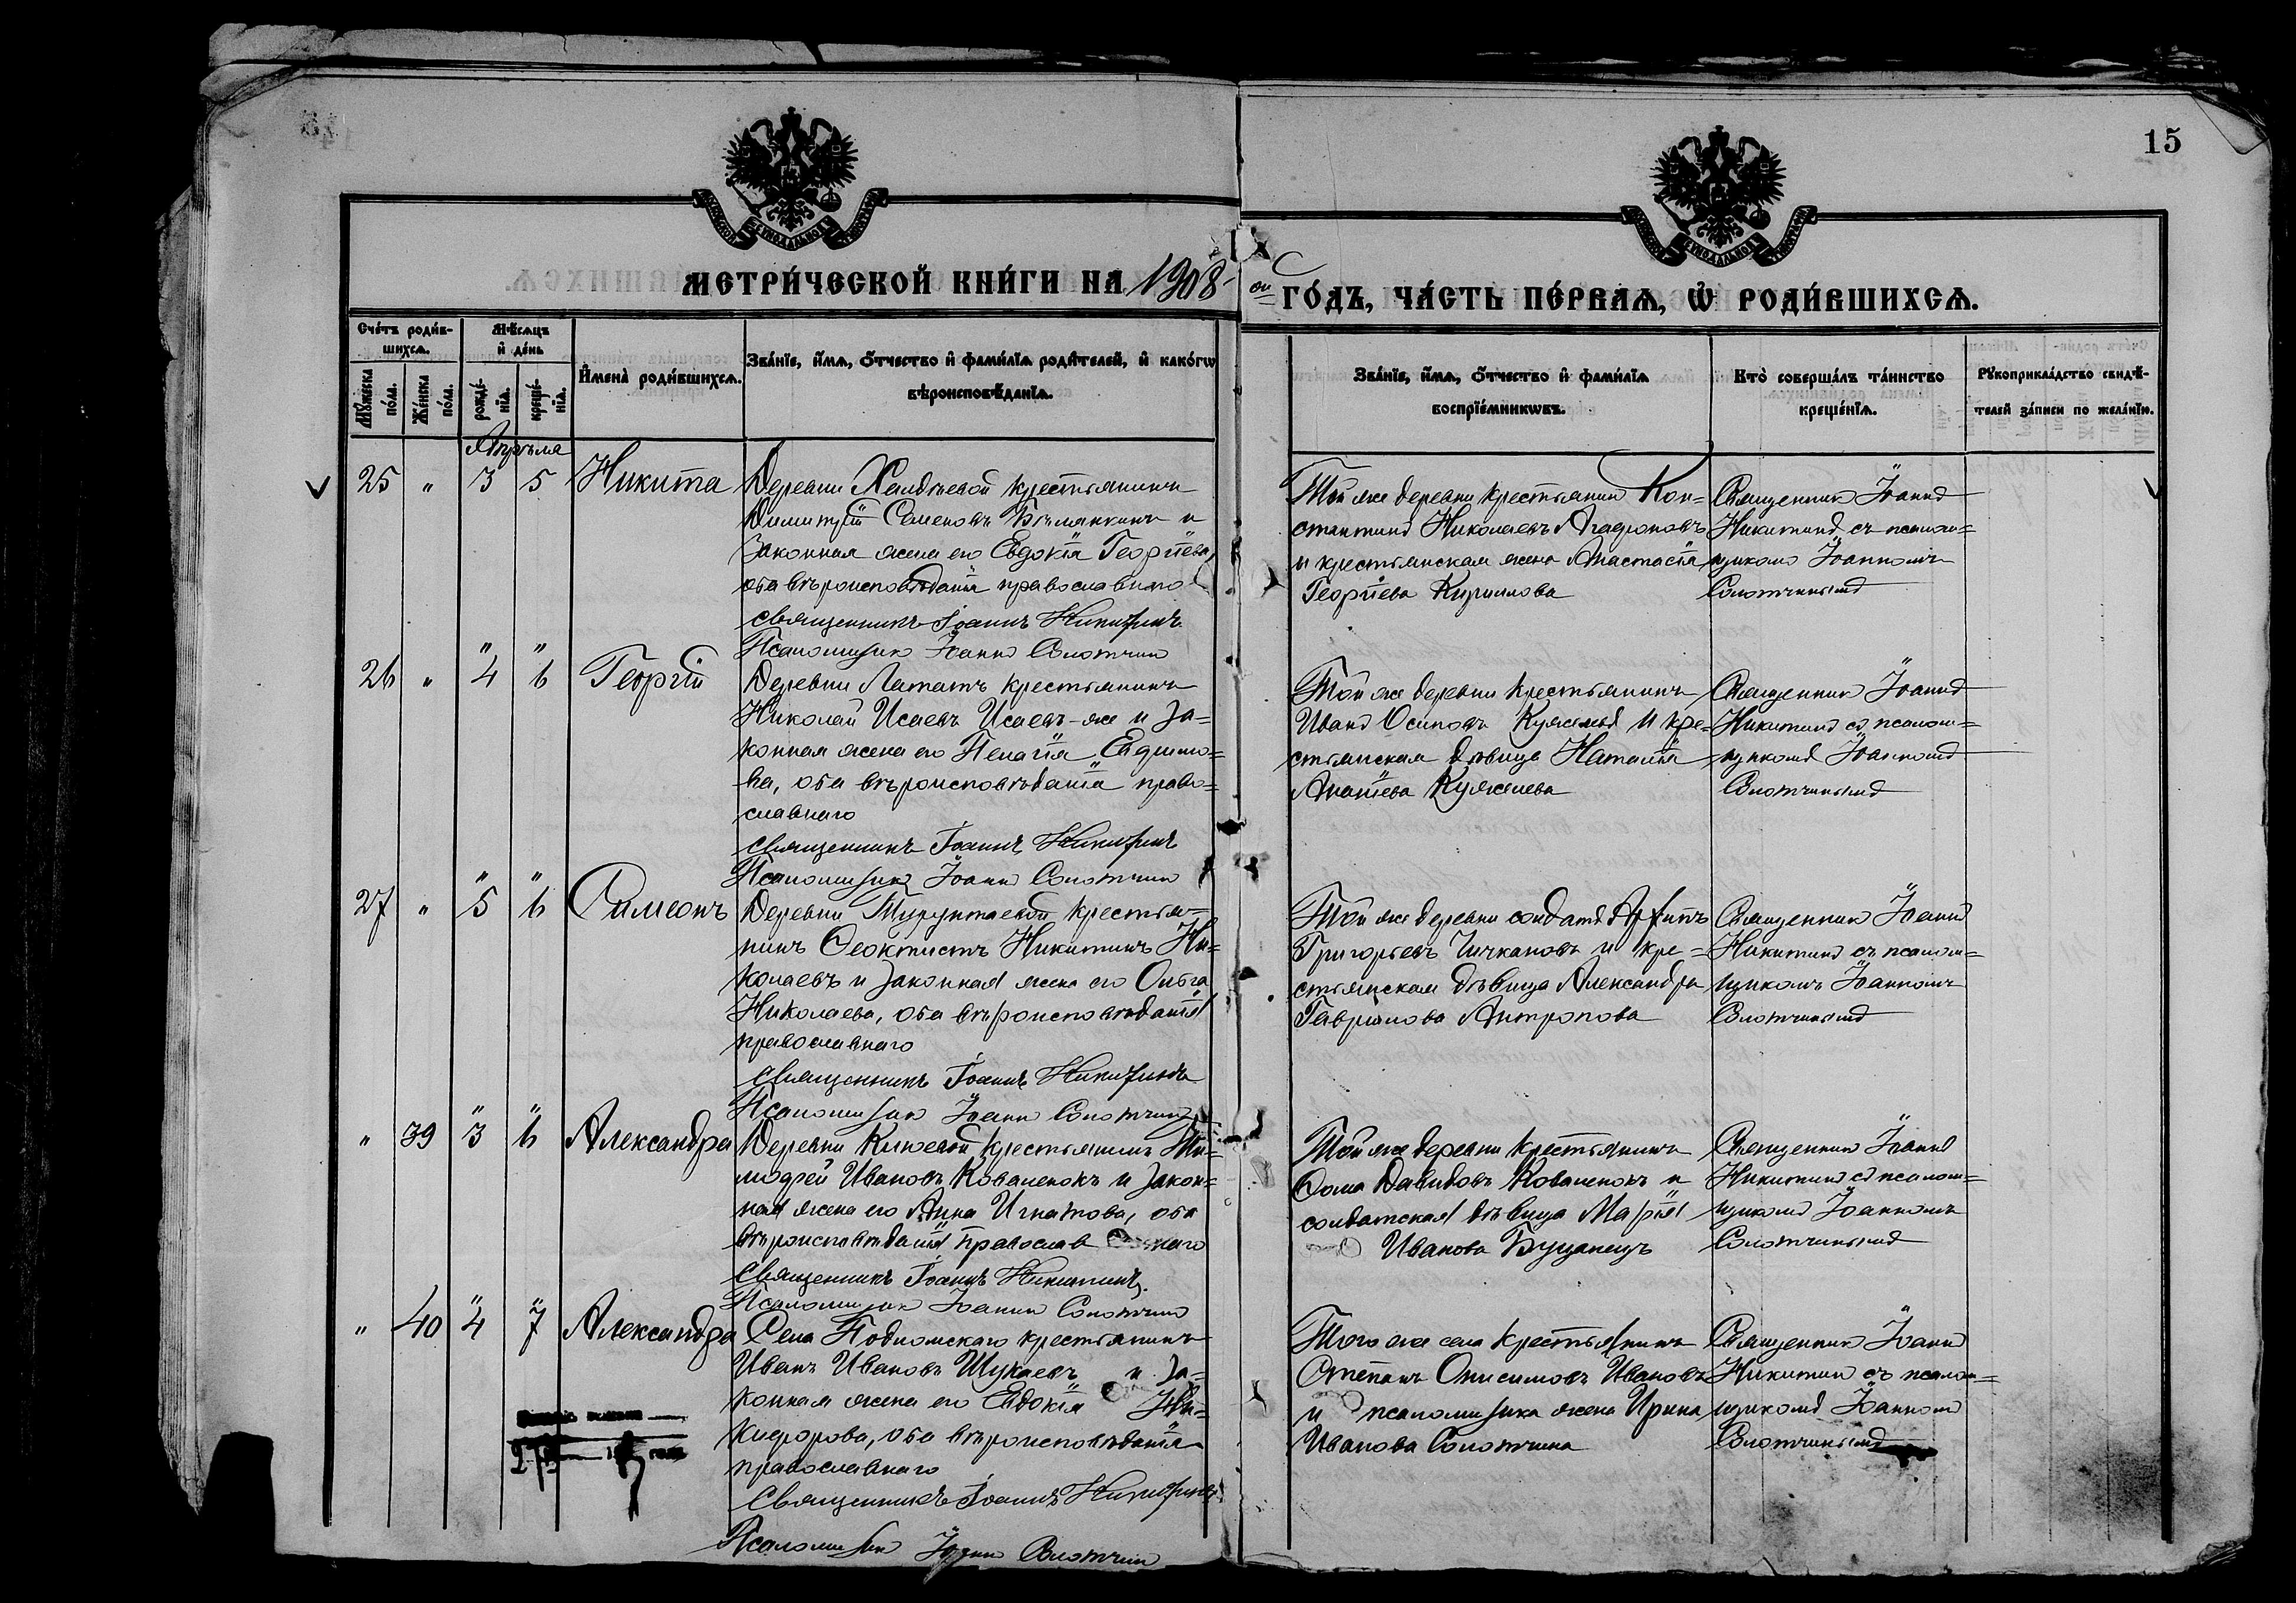 15
МЕТРИ́ЧЕСКОЙ КНИ́ГИ НА 1908-
ой ГО́ДЪ, ЧА́СТЬ ПЕ́РВАЯ, Ѡ РОДИ́ВШИХСЯ.
Сче́тъ роди́в-
шихся.
Му́жеска по́ла.
Же́нска по́ла.
Мѣ́сяцъ
и де́нь
рожде́-
нія.
креще́-
нія.
И́мена роди́вшихся.
Зва́ніе, и́мя, о́тчество и фами́лія роди́телей, и како́гѡ
вѣроисповѣ́данія.
Зва́ніе, и́мя, о́тчество и фами́лія
воспріе́мникѡвъ.
Кто̀ соверша́лъ та́инство
креще́нія.
Рукоприкла́дство свидѣ́-
телей за́писи по жела́нію.
Апрѣля
25 " 3 5 Никита
Деревни Халдѣевой крестьянинъ
Димитрій Семеновъ Бѣлянкинъ и
законная жена его Евдокія Георгіева,
оба вѣроисповѣданія православнаго
Священникъ Іоаннъ Никитинъ
Псаломщикъ Іоаннъ Солотчинъ
Той же деревни крестьянинъ Кон=
стантинъ Николаевъ Агафоновъ
и крестьянская жена Анастасія
Георгіева Кириллова
Священникъ Іоаннъ
Никитинъ съ псалом=
щикомъ Іоанномъ
Солотчинымъ
" "
26 " 4 6 Георгій
Деревни Лататъ крестьянинъ
Николай Исаевъ Исаевъ-же и за=
конная жена его Пелагія Евдокимо=
ва, оба вѣроисповѣданія право=
славнаго
Священникъ Іоаннъ Никитинъ
Псаломщикъ Іоаннъ Солотчинъ
Той же деревни крестьянинъ
Иванъ Осиповъ Кужелевъ и кре=
стьянская дѣвица Наталія
Ананіева Кужелева
Священникъ Іоаннъ
Никитинъ съ псалом=
щикомъ Іоанномъ
Солотчинымъ
" "
27 " 5 6 Симеонъ
Деревни Турунтаевой крестья=
нинъ Ѳеоктистъ Никитинъ Ни=
колаевъ и законная жена его Ольга
Николаева, оба вѣроисповѣданія
православнаго
Священникъ Іоаннъ Никитинъ
Псаломщикъ Іоаннъ Солотчинъ
Той же деревни солдатъ
Григорьевъ Чичкановъ и кре=
стьянская дѣвица Александра
Гаврилова Антропова
Священникъ Іоаннъ
Никитинъ съ псалом=
щикомъ Іоанномъ
Солотчинымъ
" "
" 39 3 6 Александра
Деревни крестьянинъ Ти=
моѳей Ивановъ Коваленокъ и закон=
ная жена его Анна Игнатова, оба
вѣроисповѣданія православнаго
Священникъ Іоаннъ Никитинъ.
Псаломщикъ Іоаннъ Солотчинъ
Той же деревни крестьянинъ
Ѳома Давидовъ Коваленокъ и
солдатская дѣвица Марія
Иванова Буцанецъ
Священникъ Іоаннъ
Никитинъ съ псалом=
щикомъ Іоанномъ
Солотчинымъ
" "
" 40 4 7 Александра
Села Подломскаго крестьянинъ
Иванъ Ивановъ Шукаевъ и за=
конная жена его Евдокія Ни=
кифорова, оба вѣроисповѣданія
православнаго
Священникъ Іоаннъ Никитинъ
Псаломщикъ Іоаннъ Солотчинъ
Того же села крестьянинъ
Степанъ Онисимовъ Ивановъ
и псаломщика жена Ирина
Иванова Солотчина
Священникъ Іоаннъ
Никитинъ съ псалом=
щикомъ Іоанномъ
Солотчинымъ